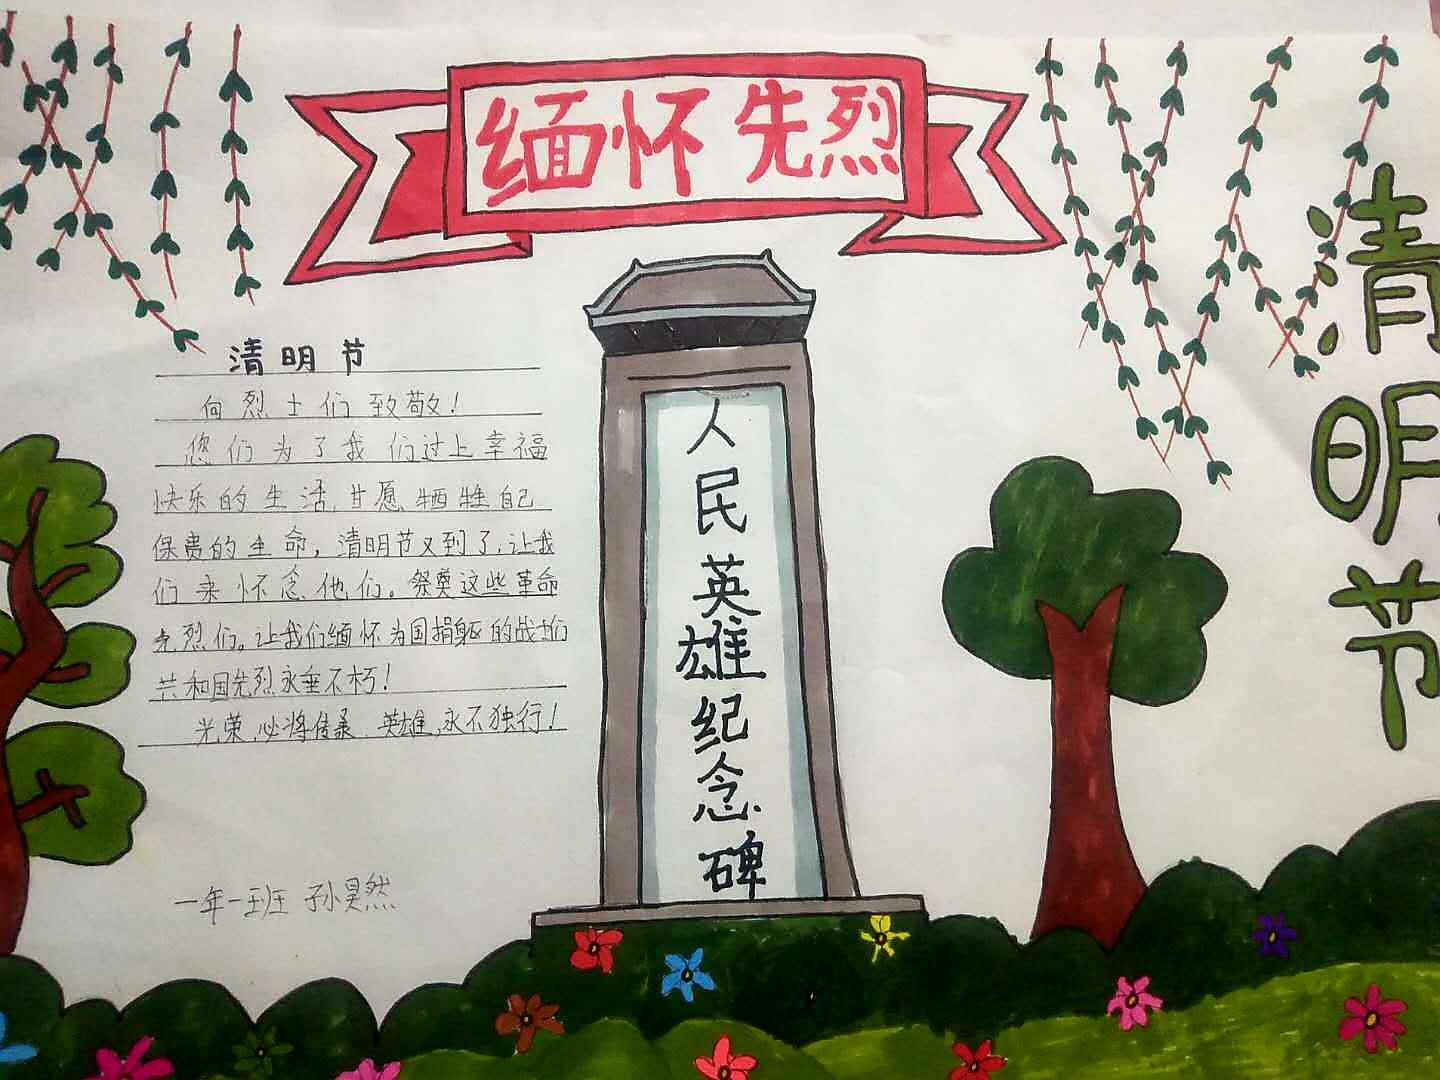 缅怀先烈
清明节
向烈士们致敬!
您们为了我们过上幸福
快乐的生活,甘愿牺牲自己
保贵的生命，清明节又到了,让我
们来怀念他们。祭奠这些革命
先烈们。让我们缅怀为国捐躯的战士们
共和国先烈永垂不朽!
光荣,必将传承.英雄,永不独行!
一年一班 孙昊然
人民英雄纪念碑
清明节